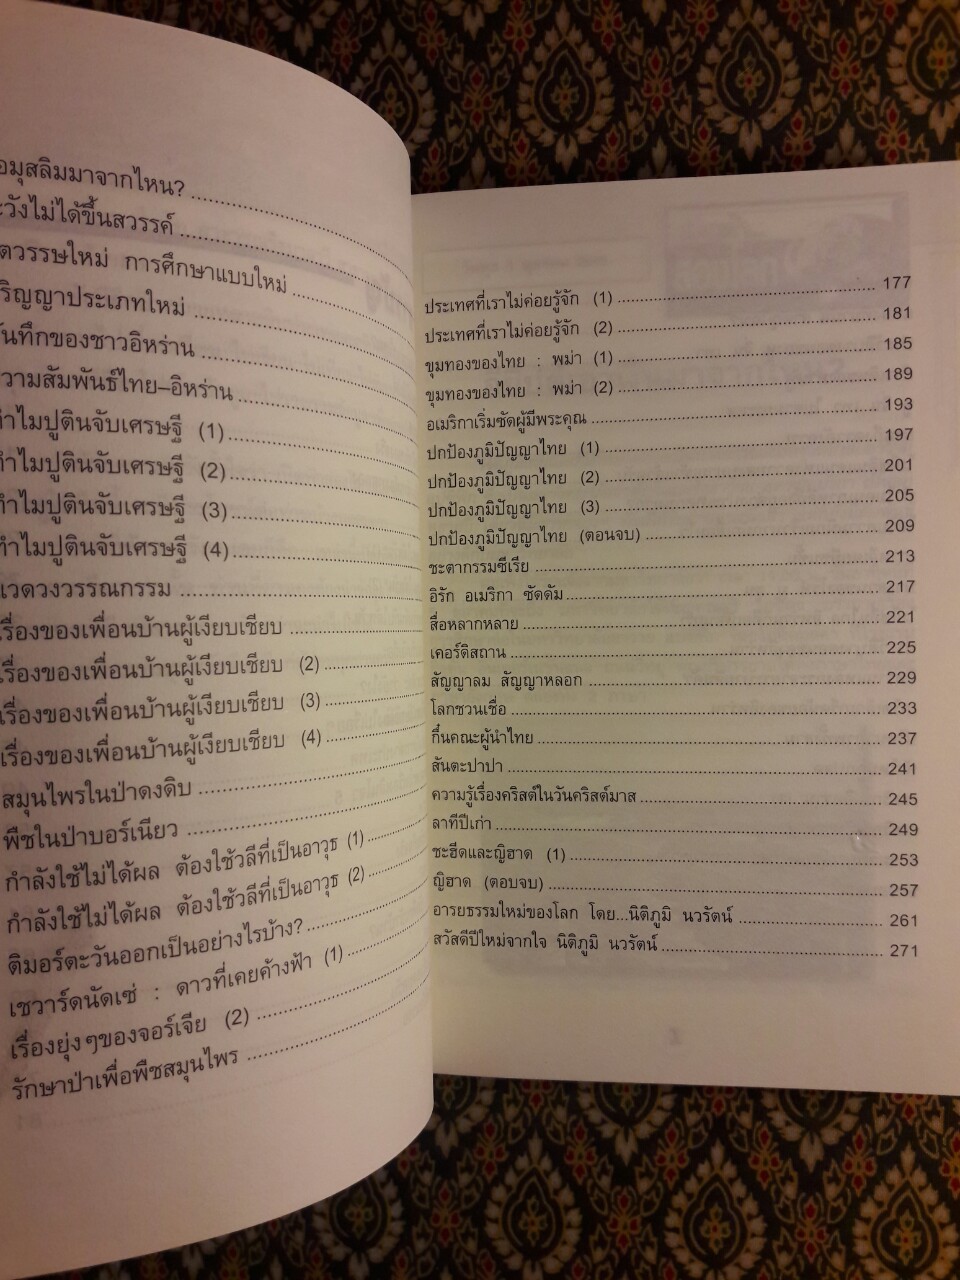 มุสลิมมาจากไหน? ........
วังไม่ได้ขึ้นสวรรค์ ........
ตวรรษใหม่ การศึกษาแบบใหม่ ........
ริญญาประเภทใหม่ ........
นทึกของชาวอิหร่าน ........
วามสัมพันธ์ไทย–อิหร่าน ........
ทำไมปูตินจับเศรษฐี (1) ........
ทำไมปูตินจับเศรษฐี (2) ........
ทำไมปูตินจับเศรษฐี (3) ........
ทำไมปูตินจับเศรษฐี (4) ........
แวดวงวรรณกรรม ........
เรื่องของเพื่อนบ้านผู้เงียบเชียบ ........
เรื่องของเพื่อนบ้านผู้เงียบเชียบ (2) ........
เรื่องของเพื่อนบ้านผู้เงียบเชียบ (3) ........
เรื่องของเพื่อนบ้านผู้เงียบเชียบ (4) ........
สมุนไพรในป่าดงดิบ ........
พืชในป่าบอร์เนียว ........
กำลังใช้ไม่ได้ผล ต้องใช้วลีที่เป็นอาวุธ (1) ........
กำลังใช้ไม่ได้ผล ต้องใช้วลีที่เป็นอาวุธ (2) ........
ติมอร์ตะวันออกเป็นอย่างไรบ้าง? ........
เชวาร์ดนัดเซ่ : ดาวที่เคยค้างฟ้า (1) ........
เรื่องยุ่งๆของจอร์เจีย (2) ........
รักษาป่าเพื่อพืชสมุนไพร ........
ประเทศที่เราไม่ค่อยรู้จัก (1) ........ 177
ประเทศที่เราไม่ค่อยรู้จัก (2) ........ 181
ขุมทองของไทย : พม่า (1) ........ 185
ขุมทองของไทย : พม่า (2) ........ 189
อเมริกาเริ่มซัดผู้มีพระคุณ ........ 193
ปกป้องภูมิปัญญาไทย (1) ........ 197
ปกป้องภูมิปัญญาไทย (2) ........ 201
ปกป้องภูมิปัญญาไทย (3) ........ 205
ปกป้องภูมิปัญญาไทย (ตอนจบ) ........ 209
ชะตากรรมซีเรีย ........ 213
อิรัก อเมริกา ซัดดัม ........ 217
สื่อหลากหลาย ........ 221
เคอร์ดิสถาน ........ 225
สัญญาลม สัญญาหลอก ........ 229
โลกชวนเชื่อ ........ 233
กึ๋นคณะผู้นำไทย ........ 237
สันตะปาปา ........ 241
ความรู้เรื่องคริสต์ในวันคริสต์มาส ........ 245
ลาทีปีเก่า ........ 249
ชะฮีดและญิฮาด (1) ........ 253
ญิฮาด (ตอบจบ) ........ 257
อารยธรรมใหม่ของโลก โดย...นิติภูมิ นวรัตน์ ........ 261
สวัสดีปีใหม่จากใจ นิติภูมิ นวรัตน์ ........ 271